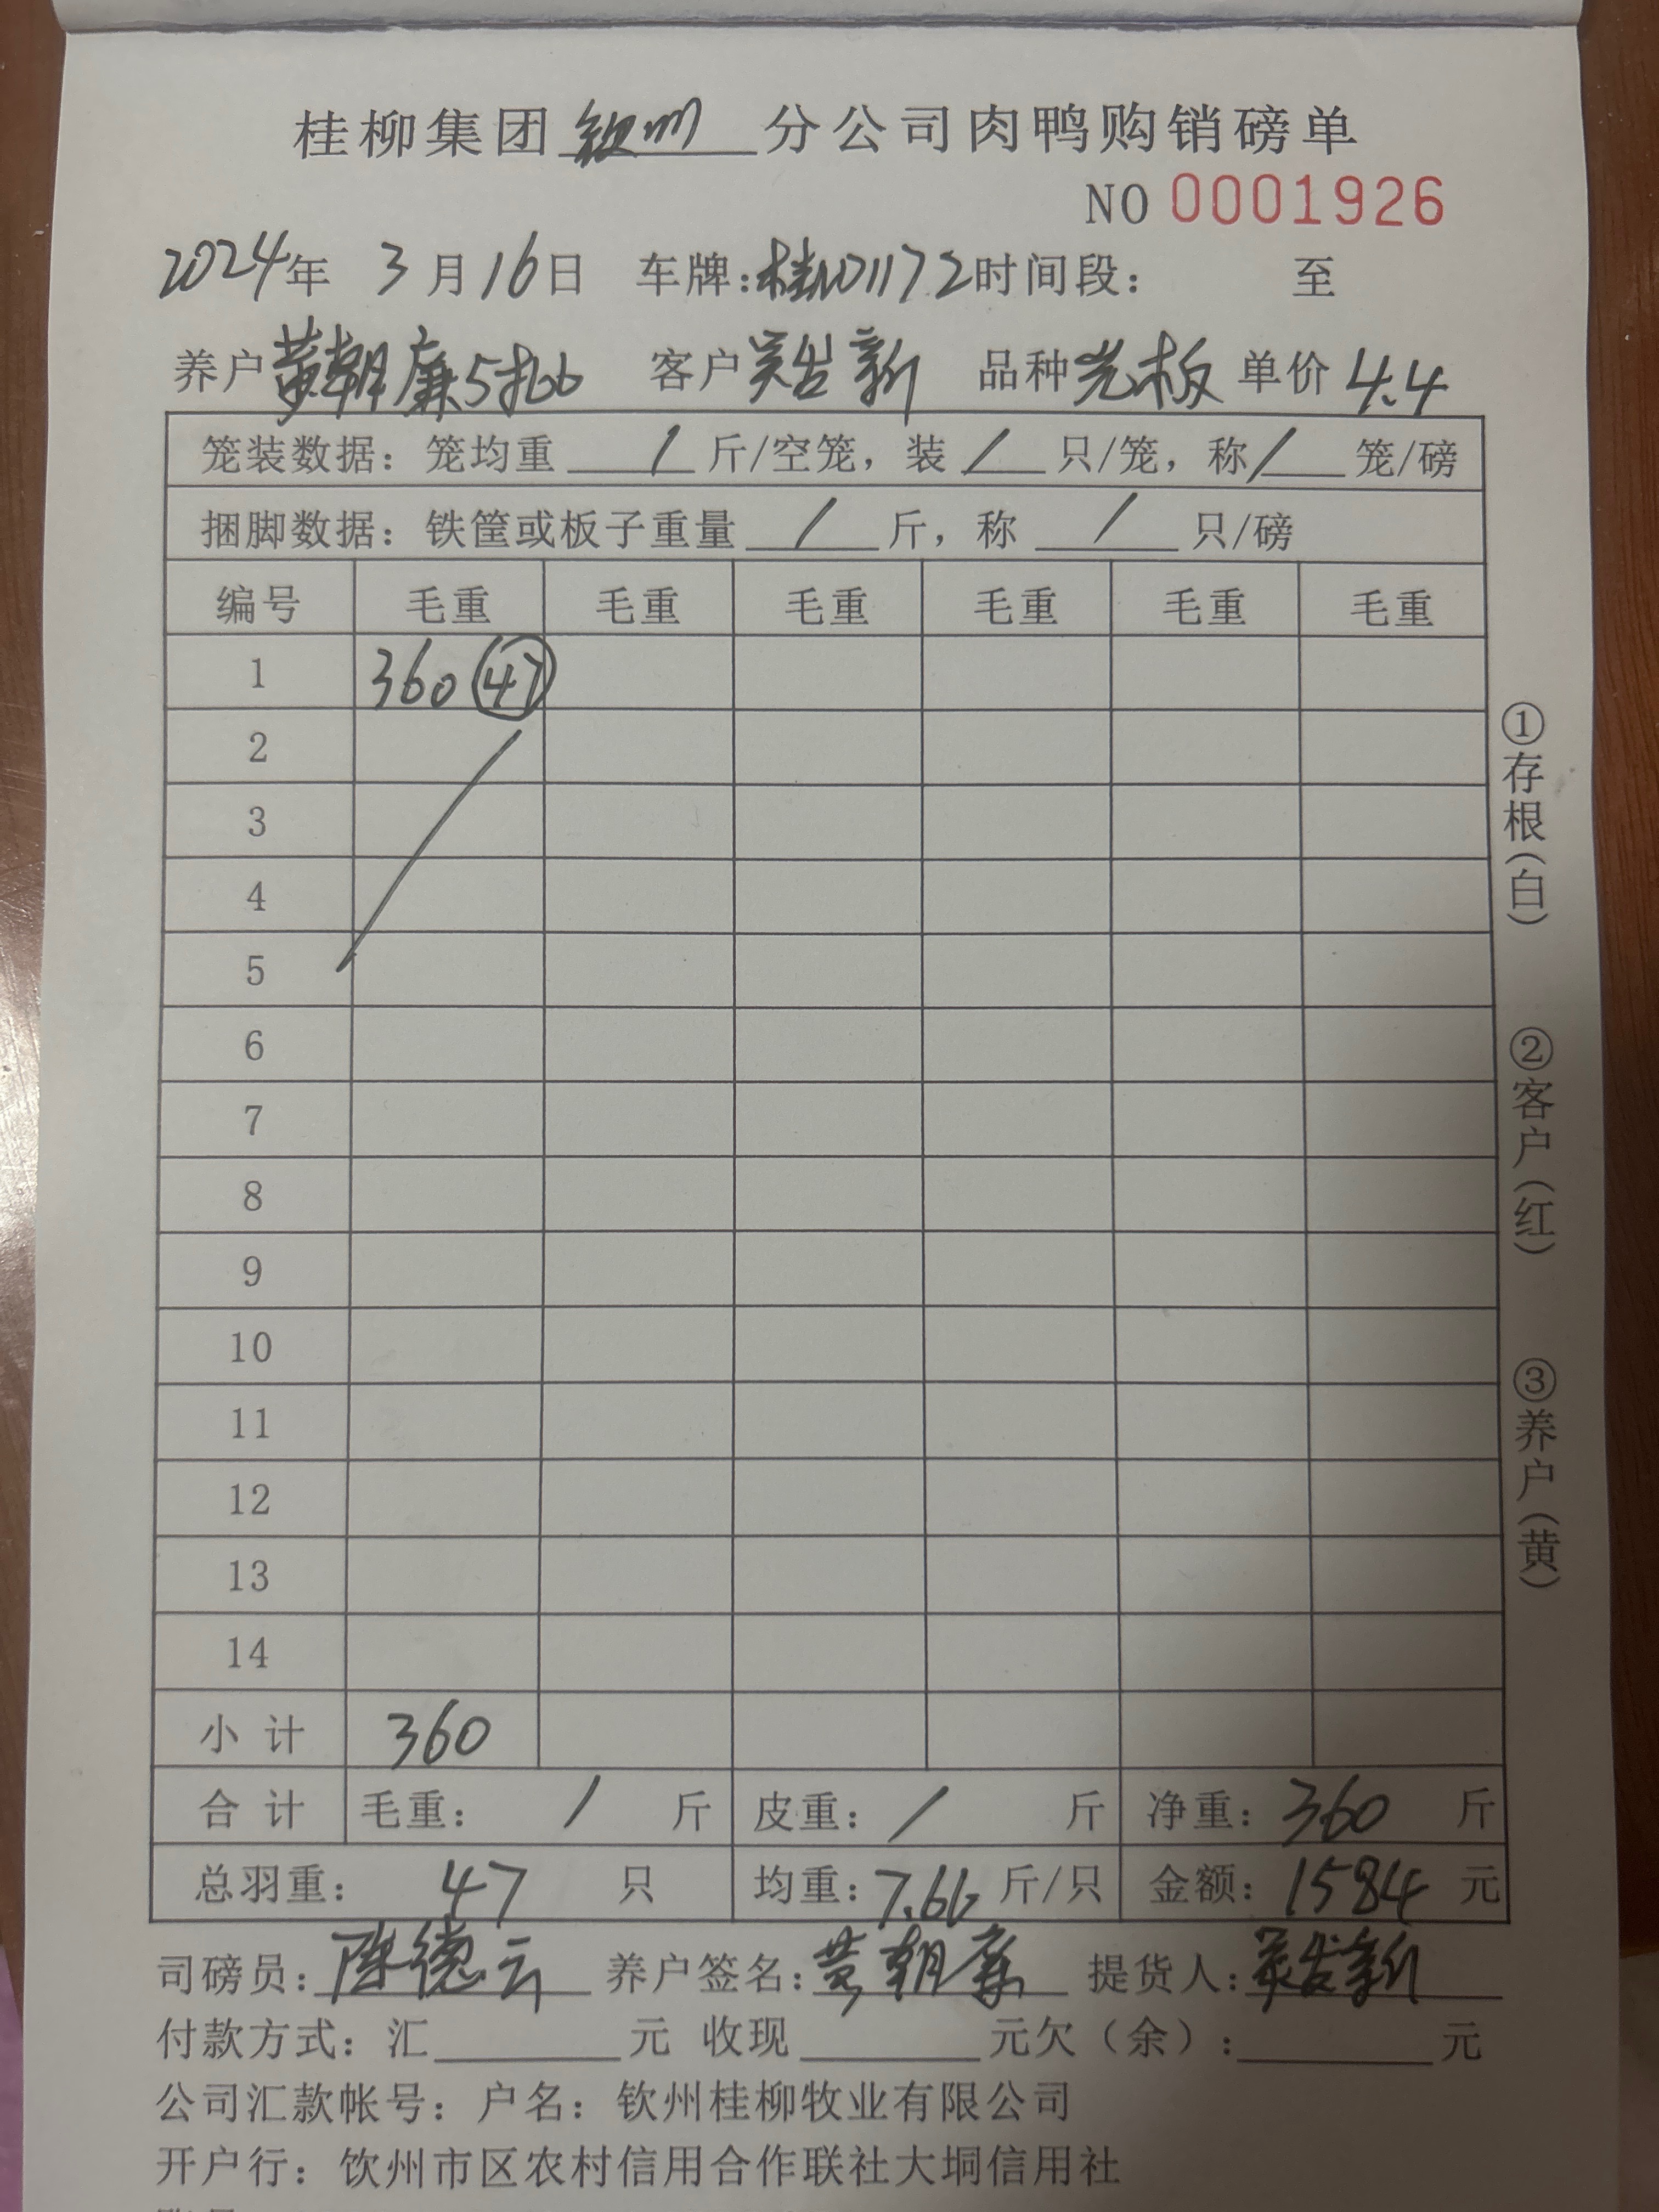 桂柳集团钦州分公司肉鸭购销磅单
NO 0001926
2024年 3月16日 车牌:桂N01172时间段: 至
养户黄朝廉5批 客户吴发新 品种光板 单价4.4
笼装数据: 笼均重 / 斤/空笼, 装 / 只/笼, 称 / 笼/磅
捆脚数据: 铁筐或板子重量 / 斤, 称 / 只/磅
编号 毛重 毛重 毛重 毛重 毛重 毛重
1 360 47
2
3
4
5
6
7
8
9
10
11
12
13
14
小计 360
合计 毛重: / 斤 皮重: / 斤 净重: 360 斤
总羽重: 47 只 均重: 7.66 斤/只 金额: 1584 元
司磅员: 陈德云 养户签名: 黄朝廉 提货人: 吴发新
付款方式: 汇 元 收现 元欠(余): 元
公司汇款帐号: 户名: 钦州桂柳牧业有限公司
开户行: 钦州市区农村信用合作联社大垌信用社
①存根(白)
②客户(红)
③养户(黄)